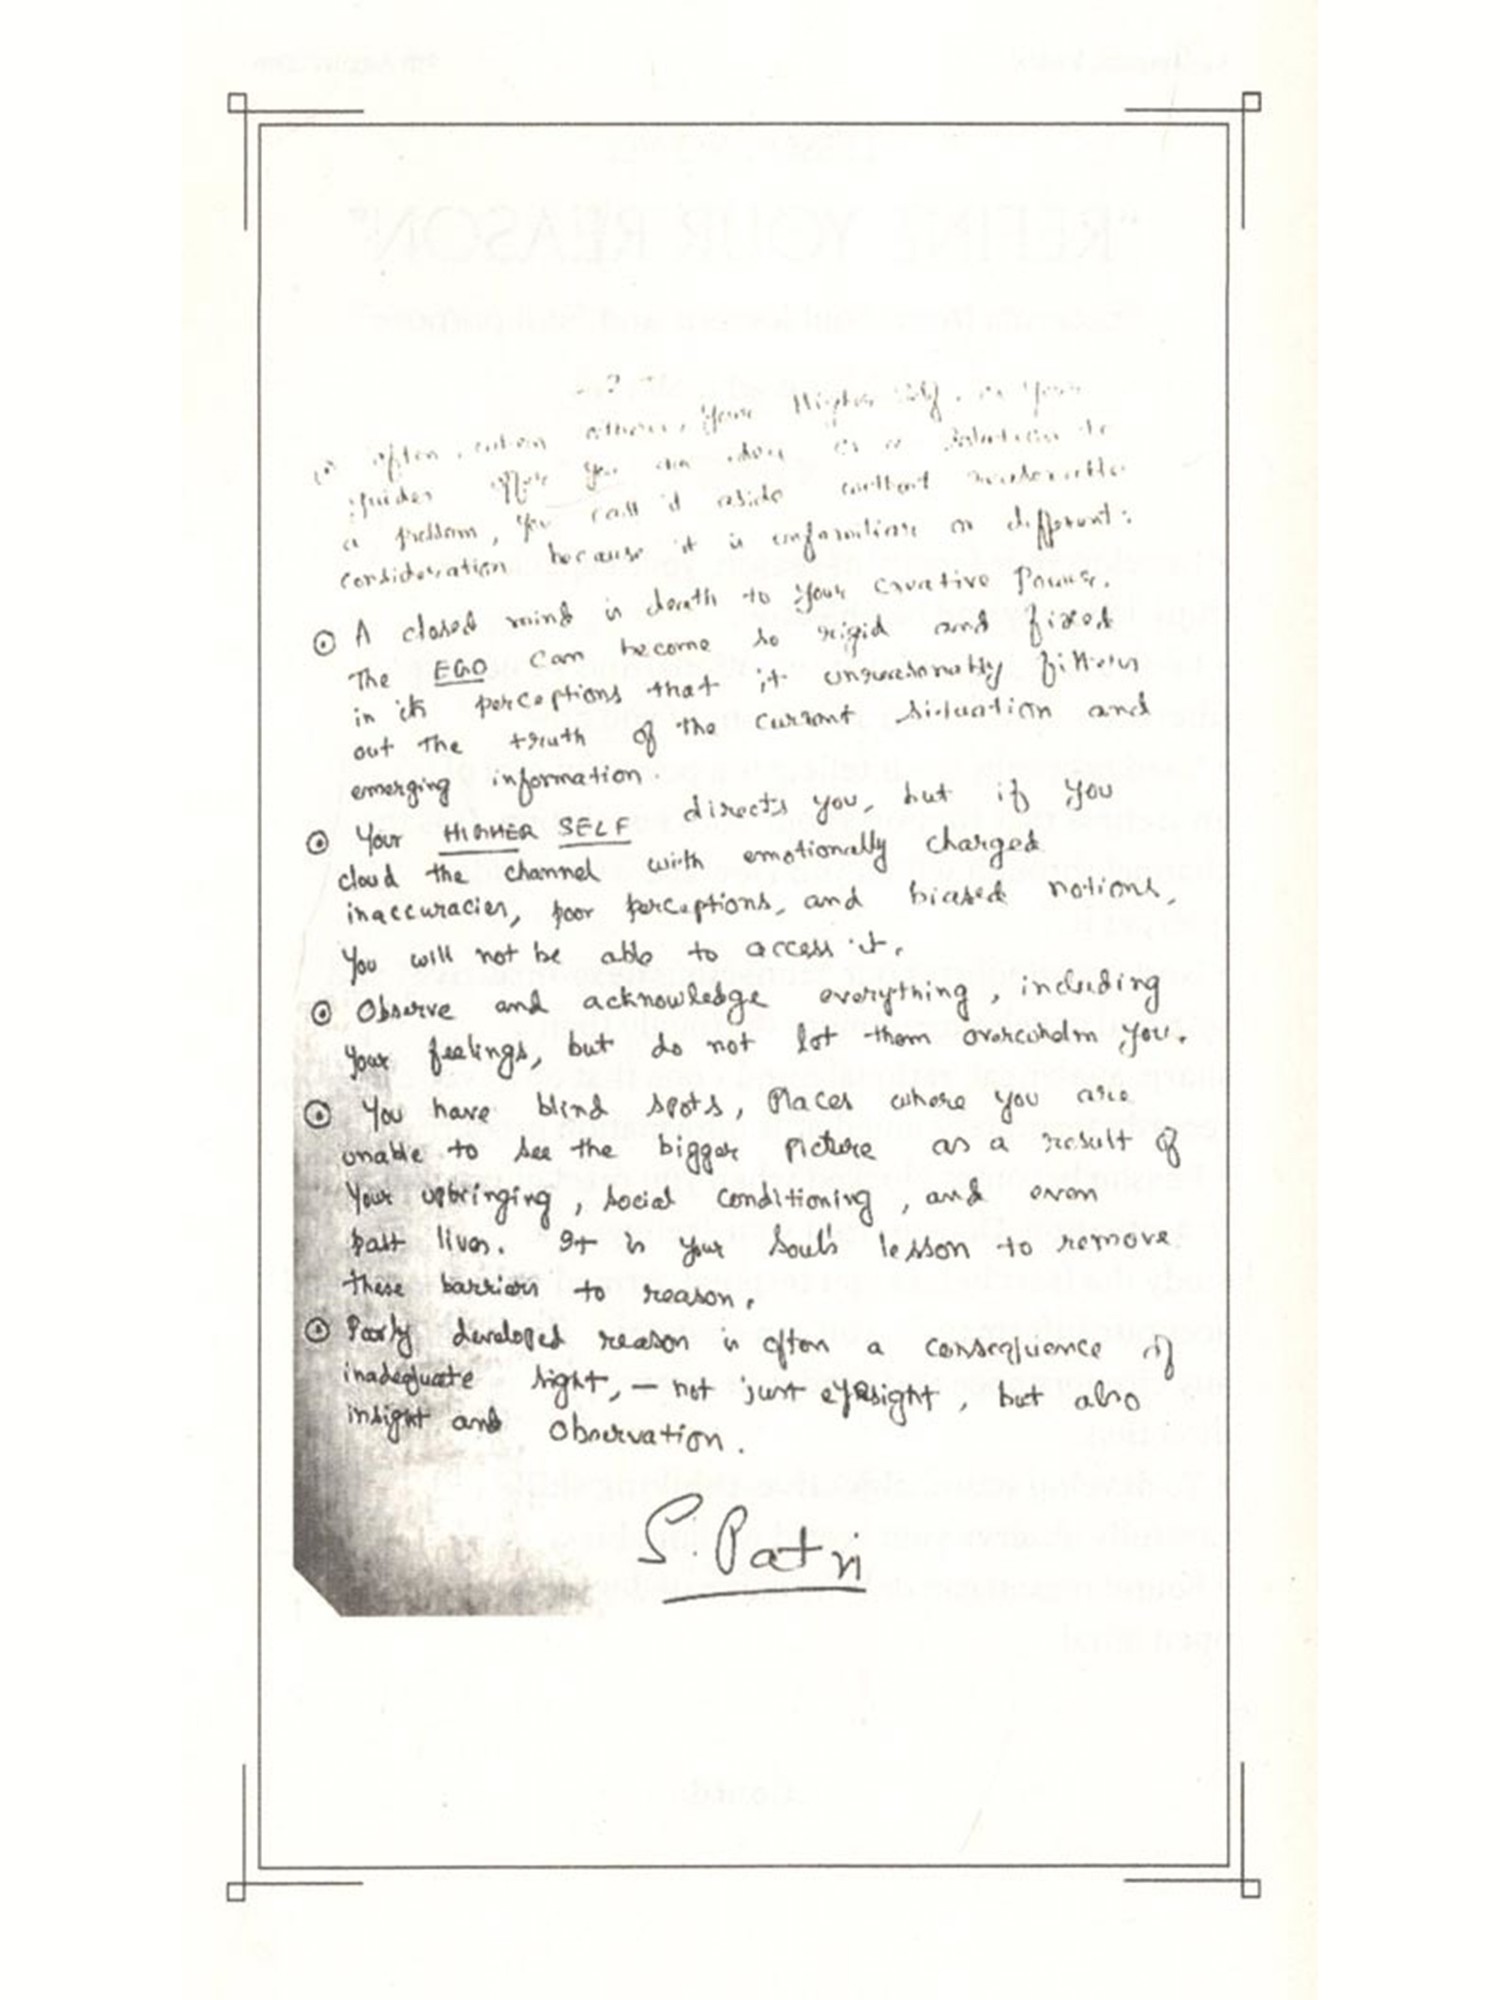 - 2 -
⊙ often, when others, your Higher Self, or your
guides offer you an idea as a solution to
a problem, you cast it aside without
consideration because it is unfamiliar or different.
⊙ A closed mind is death to your creative Power.
The EGO can become so rigid and fixed
in its perceptions that it unreasonably filters
out the truth of the current situation and
emerging information.
⊙ Your HIGHER SELF directs you, but if you
cloud the channel with emotionally charged
inaccuracies, poor perceptions, and biased notions,
you will not be able to access it.
⊙ Observe and acknowledge everything, including
your feelings, but do not let them overwhelm you.
⊙ You have blind spots, Places where you are
unable to see the bigger picture as a result of
your upbringing, social conditioning, and even
past lives. It is your soul's lesson to remove
these barriers to reason.
⊙ Poorly developed reason is often a consequence of
inadequate sight, — not just eyesight, but also
insight and observation.
S. Patri